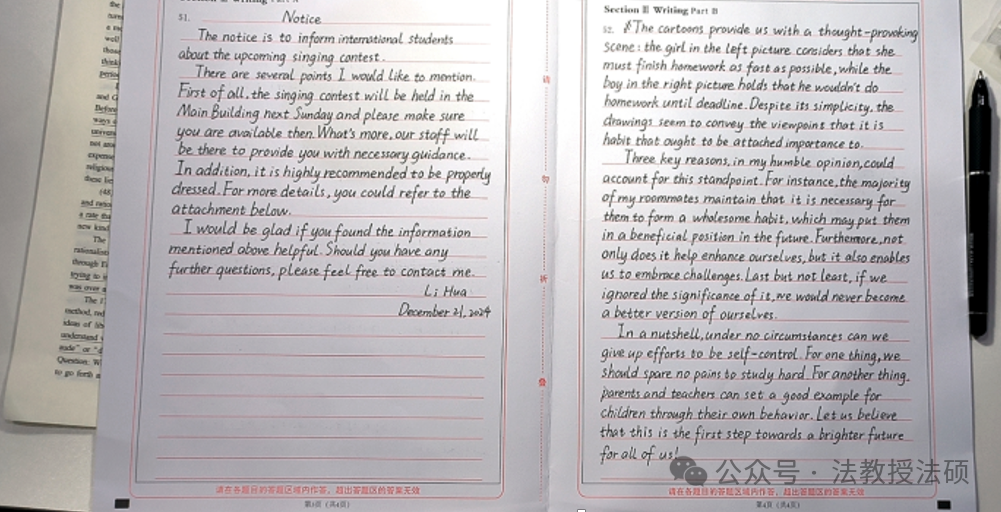 51. Notice
The notice is to inform international students
about the upcoming singing contest.
There are several points I would like to mention.
First of all, the singing contest will be held in the
Main Building next Sunday and please make sure
you are available then. What's more, our staff will
be there to provide you with necessary guidance.
In addition, it is highly recommended to be properly
dressed. For more details, you could refer to the
attachment below.
I would be glad if you found the information
mentioned above helpful. Should you have any
further questions, please feel free to contact me.
Li Hua
December 21, 2024
请在各题目的答题区域内作答，超出答题区的答案无效
第3页（共4页）
Section Ⅲ Writing Part B
52. The cartoons provide us with a thought-provoking
scene: the girl in the left picture considers that she
must finish homework as fast as possible, while the
boy in the right picture holds that he wouldn't do
homework until deadline. Despite its simplicity, the
drawings seem to convey the viewpoint that it is
habit that ought to be attached importance to.
Three key reasons, in my humble opinion, could
account for this standpoint. For instance, the majority
of my roommates maintain that it is necessary for
them to form a wholesome habit, which may put them
in a beneficial position in the future. Furthermore, not
only does it help enhance ourselves, but it also enables
us to embrace challenges. Last but not least, if we
ignored the significance of it, we would never become
a better version of ourselves.
In a nutshell, under no circumstances can we
give up efforts to be self-control. For one thing, we
should spare no pains to study hard. For another thing,
parents and teachers can set a good example for
children through their own behavior. Let us believe
that this is the first step towards a brighter future
for all of us!
请在各题目的答题区域内作答，超出答题区的答案无效
第4页（共4页）
公众号 · 法教授法硕